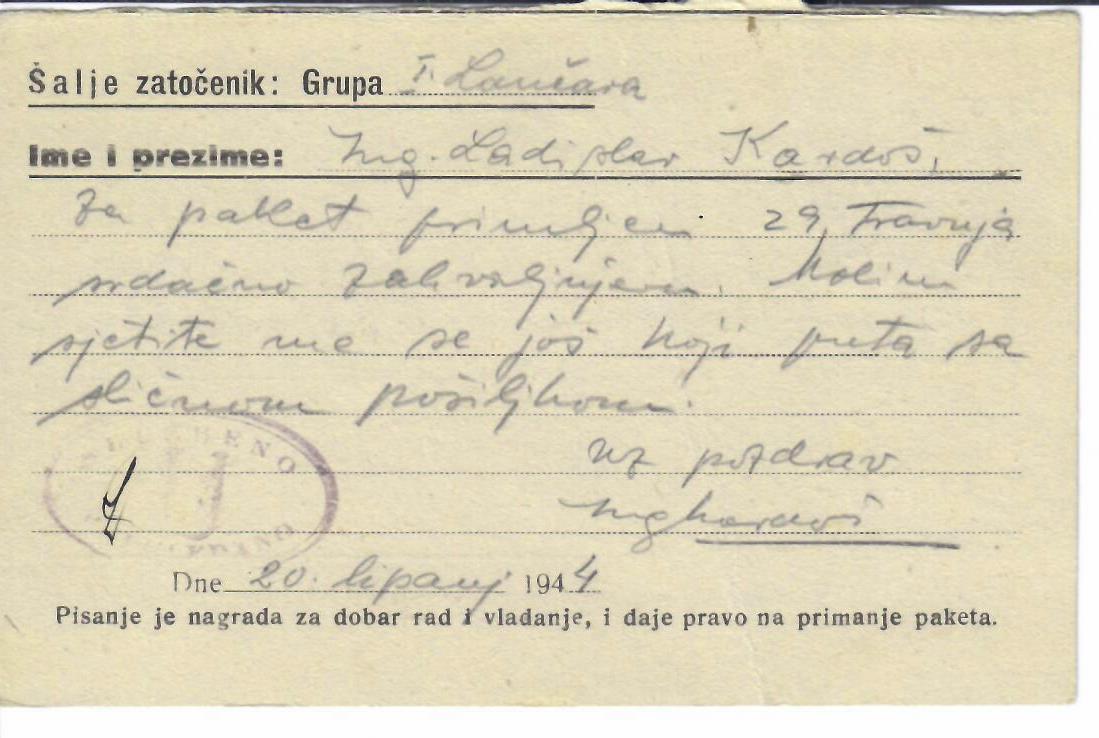 Šalje zatočenik: Grupa I. Lančara
Ime i prezime: Ing. Ladislav Kardoš,
Za paket primljen 29, Travnja
srdačno zahvaljujem. Molim
sjetite me se još koji puta sa
sličnom pošiljkom.
Uz pozdrav
Ing Kardoš
Dne 20. lipanj 1944
Pisanje je nagrada za dobar rad i vladanje, i daje pravo na primanje paketa.